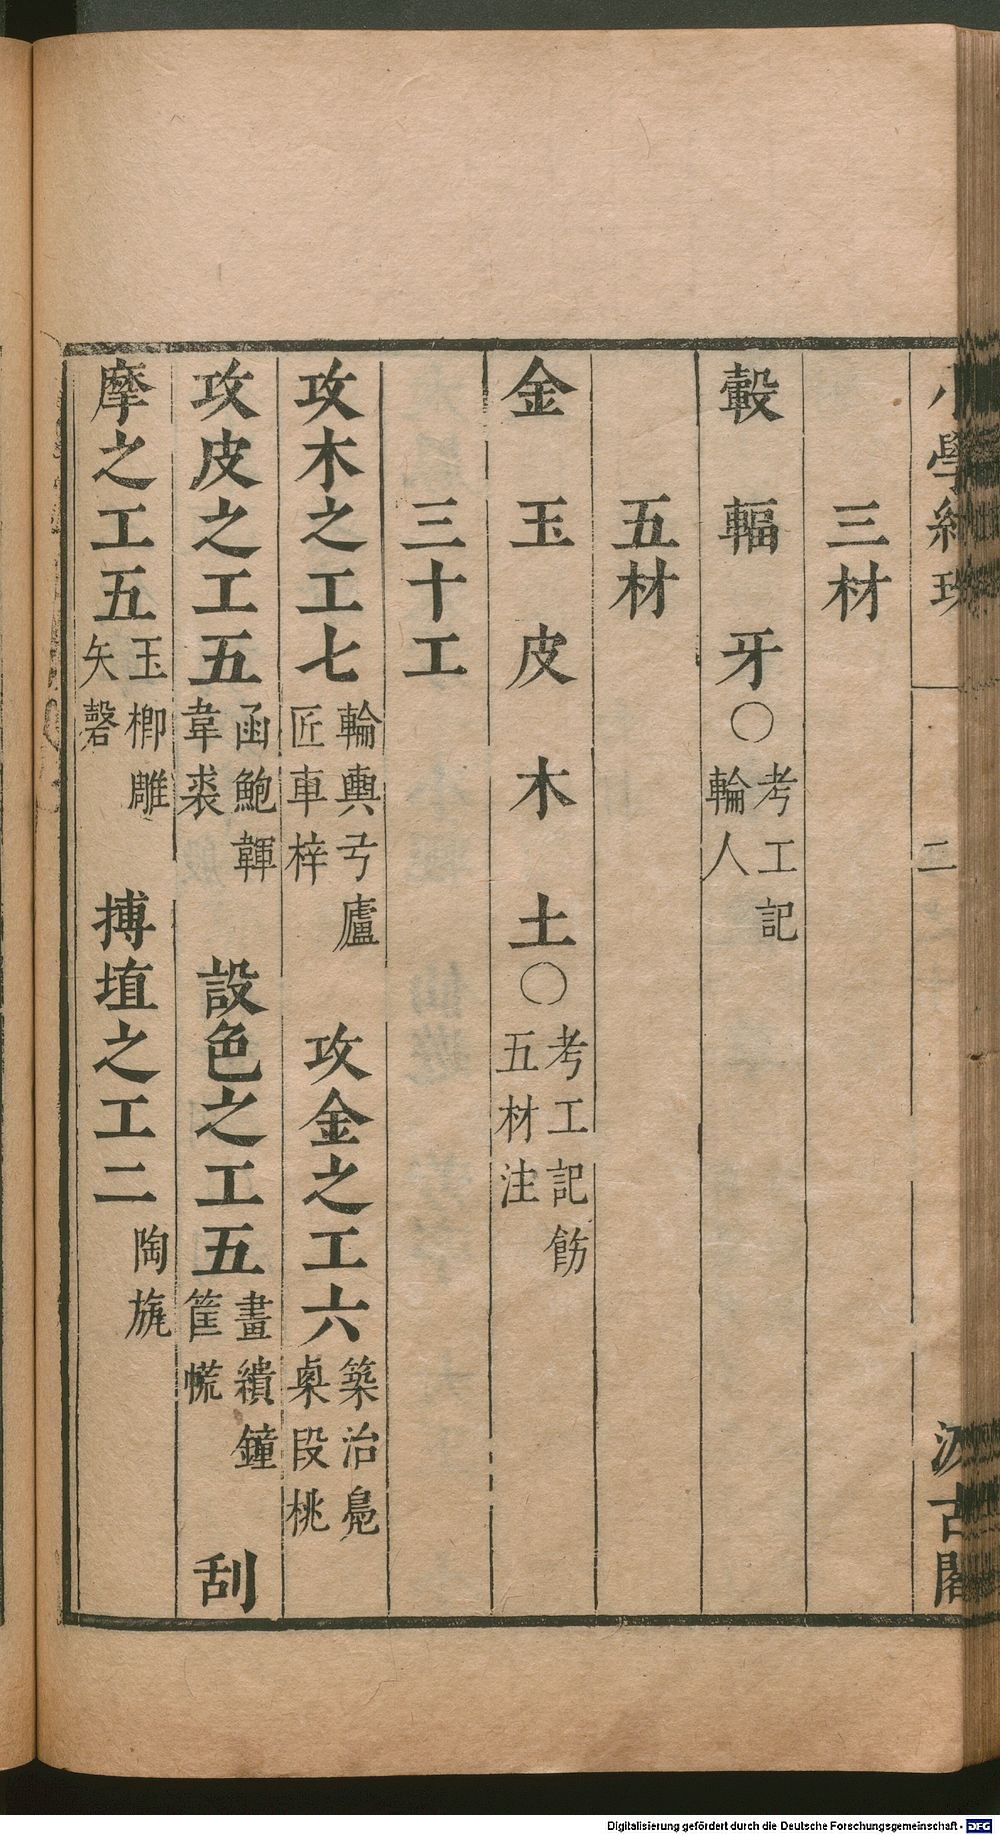 小學紺珠
二
汲古閣
三材
轂 輻 牙○考工記輪人
五材
金 玉 皮 木 土○考工記飭五材注
三十工
攻木之工七輪輿弓廬匠車梓 攻金之工六築冶鳧㮚段桃
攻皮之工五函鮑韗韋裘 設色之工五畫繢鐘筐㡆 刮
摩之工五玉楖雕矢磬 搏埴之工二陶旊
Digitalisierung gefördert durch die Deutsche Forschungsgemeinschaft - DFG